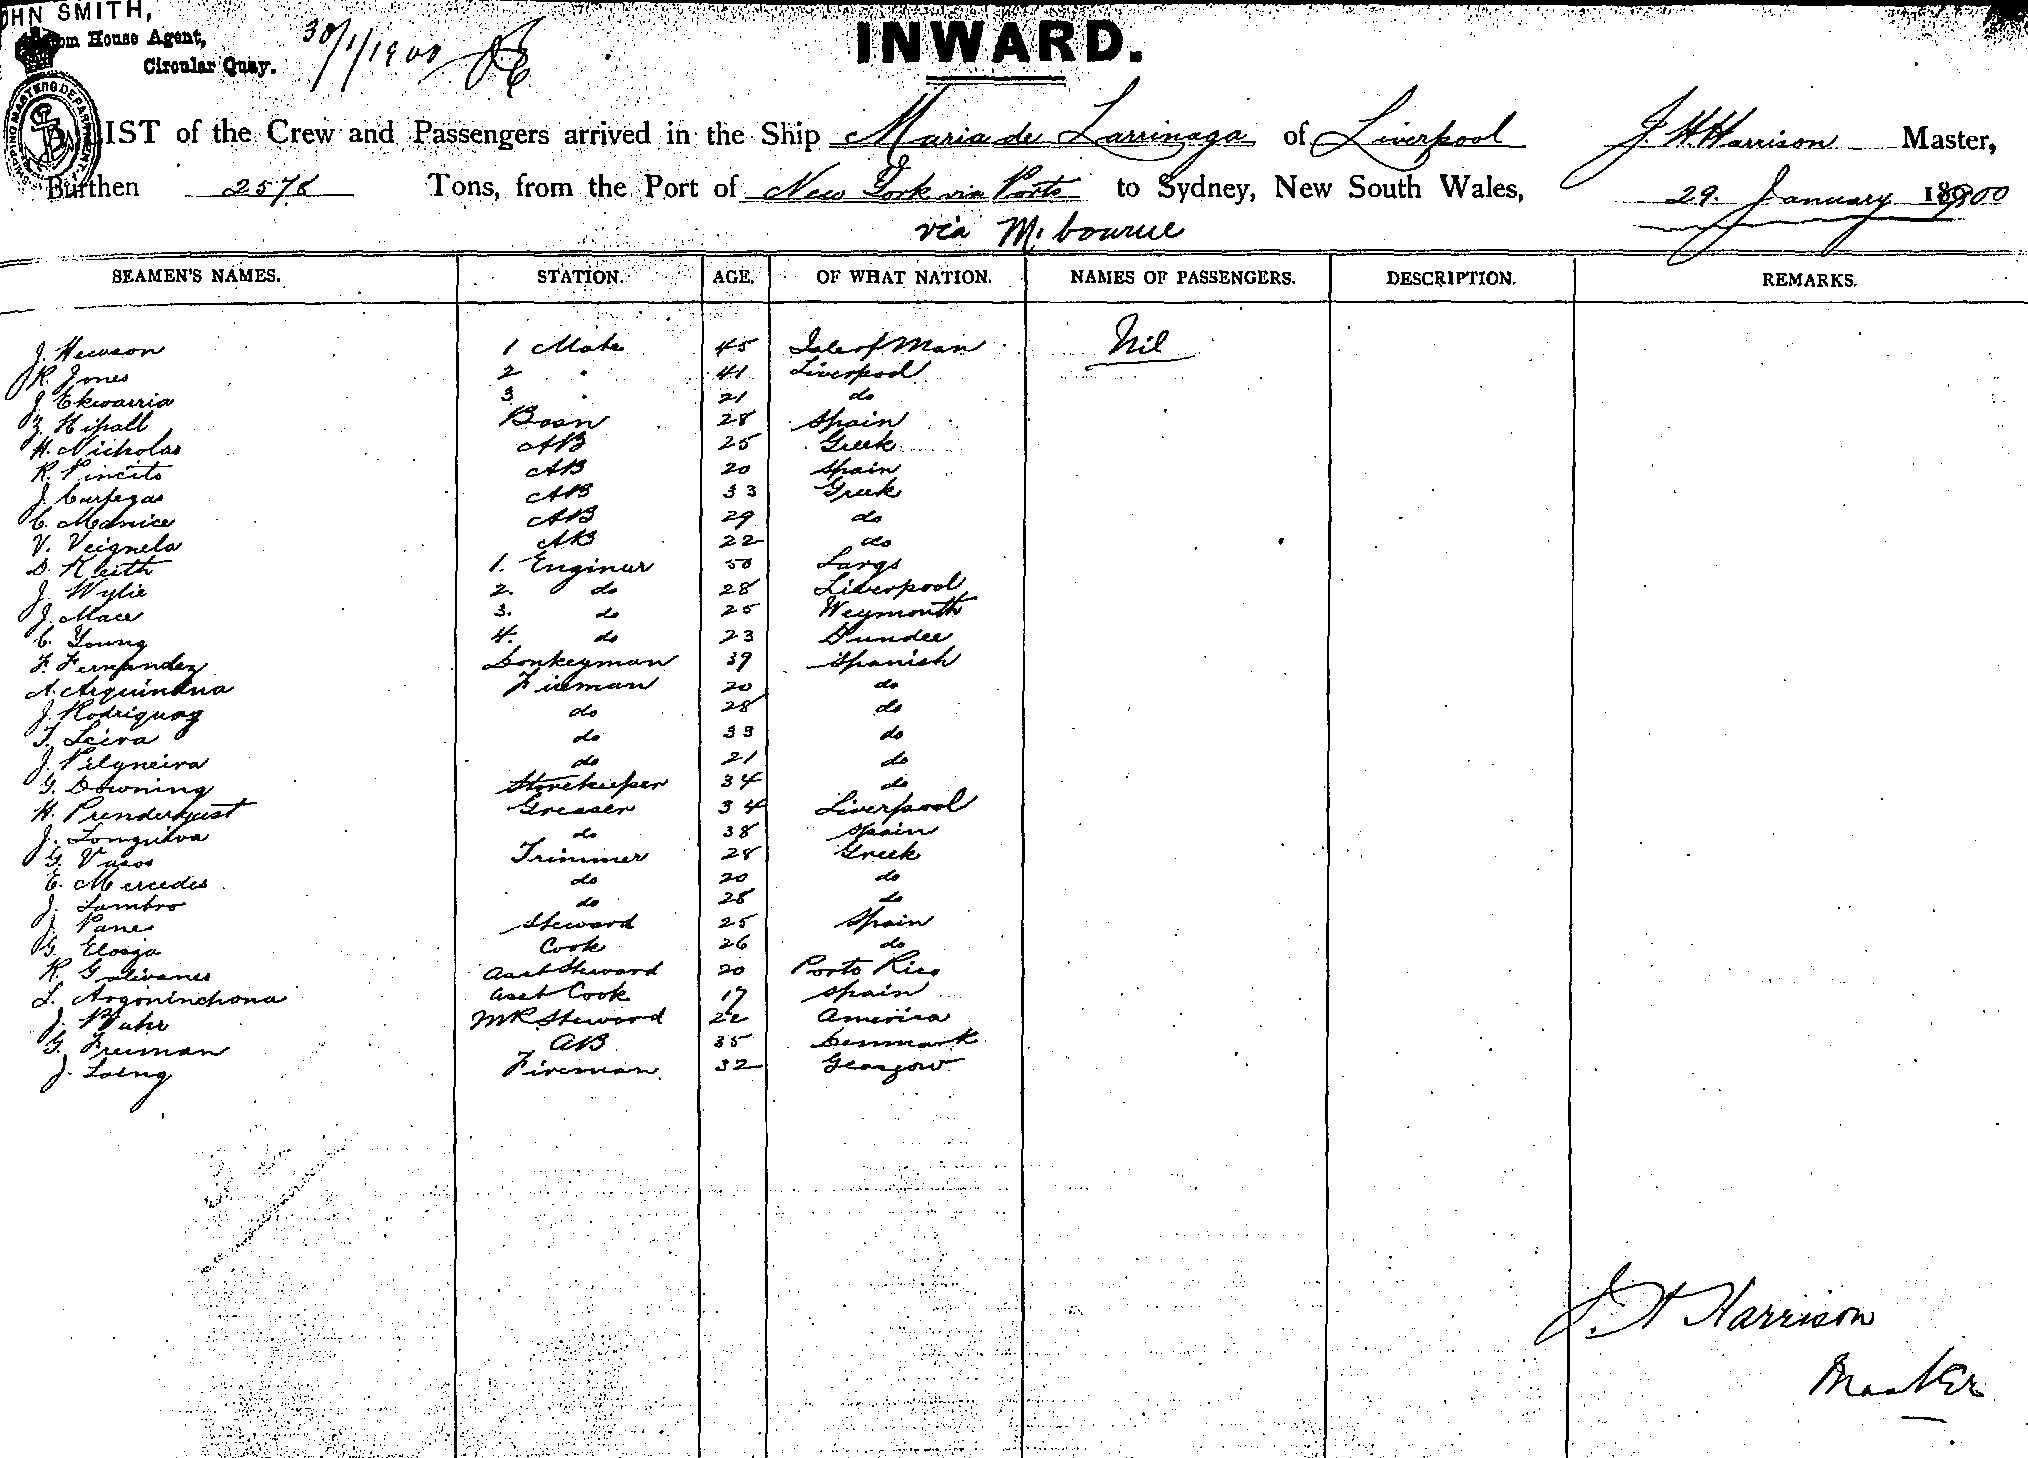 JOHN SMITH,
Custom House Agent,
Circular Quay.
30/1/1900
INWARD.
LIST of the Crew and Passengers arrived in the Ship Maria de Larrinaga of Liverpool J. H. Harrison Master,
Burthen 2578 Tons, from the Port of New York via Ports to Sydney, New South Wales, 29. January 1900
via M. bourne
SEAMEN'S NAMES. STATION. AGE. OF WHAT NATION. NAMES OF PASSENGERS. DESCRIPTION. REMARKS.
J. Hewson 1 Mate 45 Isle of Man Nil
R. Jones 2 " 41 Liverpool
J. Ekwarria 3 " 21 do
Z. Hipall Bosn 28 Spain
H. Nicholas AB 25 Greek
R. Pincito AB 20 Spain
J. Curtegas AB 33 Greek
C. Manice AB 29 do
V. Veignela AB 22 do
D. Keith 1. Engineer 50 Largs
J. Wylie 2. do 28 Liverpool
J. Mace 3. do 25 Weymouth
C. Young 4. do 23 Dundee
F. Fernandez Donkeyman 39 Spanish
A. Arquindua Fireman 20 do
J. Rodriquez do 28 do
T. Leira do 33 do
J. Pilgneira do 21 do
G. Downing Storekeeper 34 do
H. Prendergast Greaser 34 Liverpool
J. Longuiva do 38 Spain
G. Vasos Trimmer 28 Greek
E. Mercedes do 20 do
J. Lambro do 28 do
J. Pane Steward 25 Spain
G. Elosga Cook 26 do
R. Galivanes Asst Steward 20 Porto Rico
L. Argoninchona Asst Cook 17 Spain
J. Buhr MR Steward 22 America
G. Freeman AB 35 Denmark
J. Laing Fireman 32 Glasgow
J. H Harrison
Master